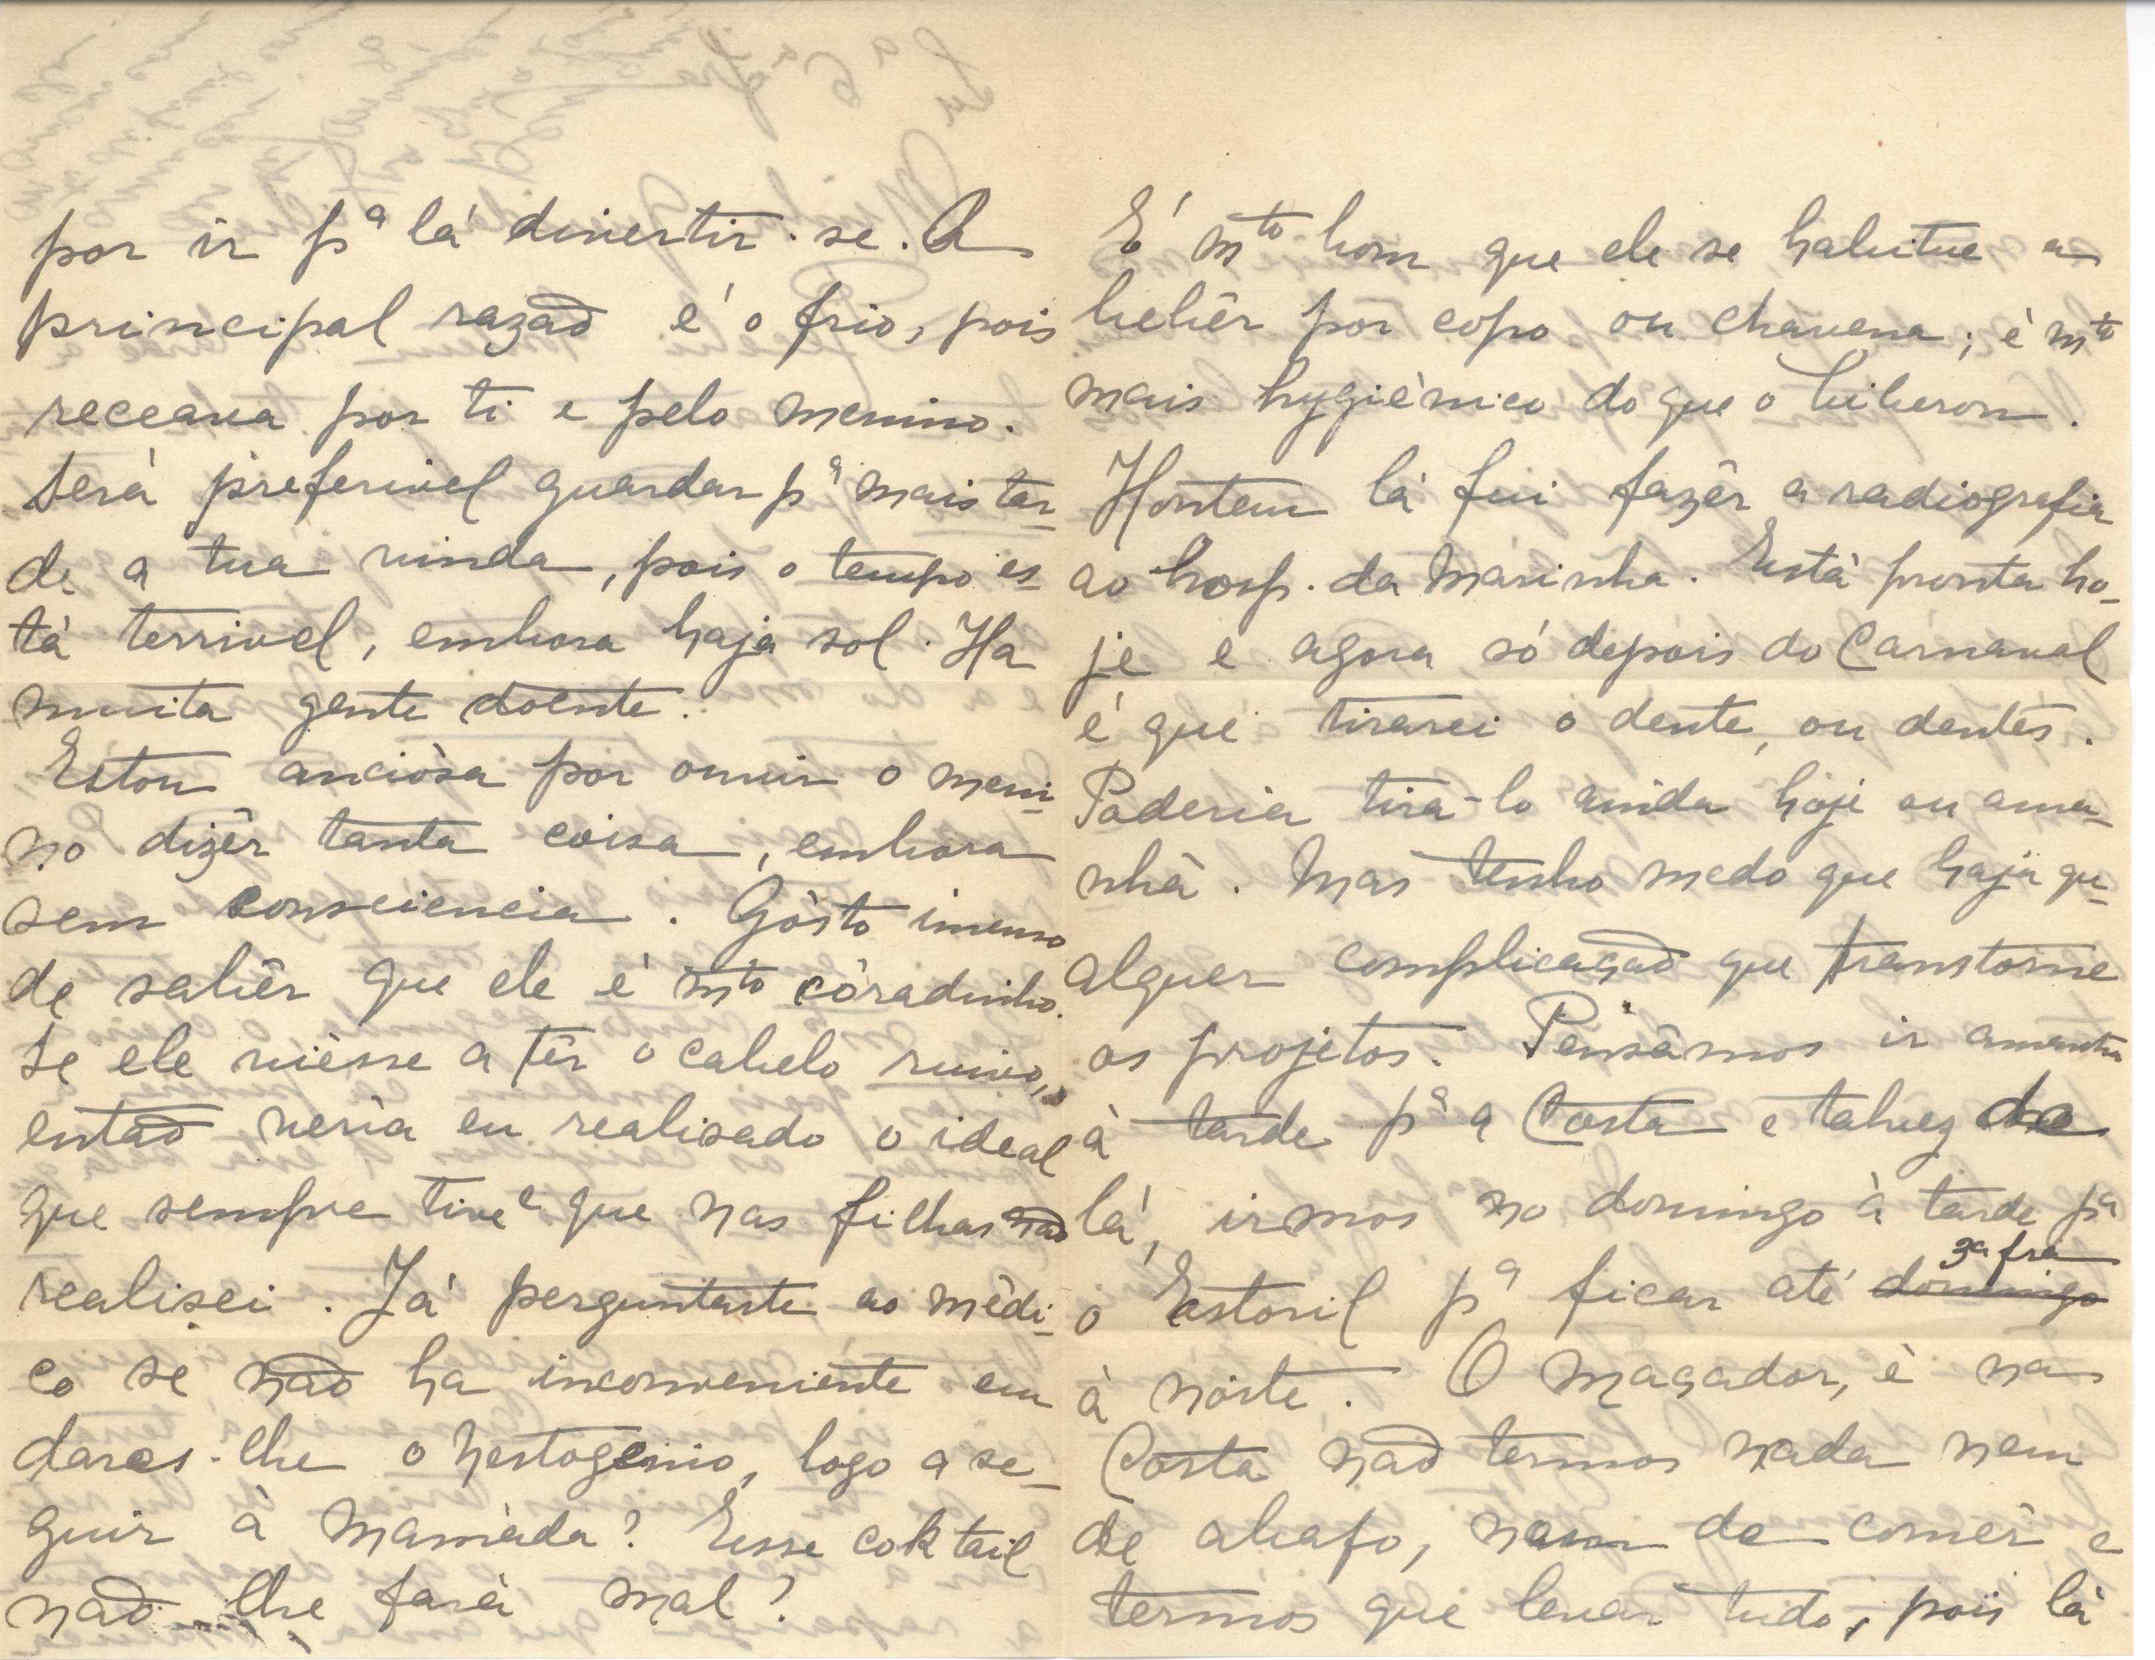 por ir pª lá divertir-se. A
principal razaõ é o frio, pois
receava por ti e pelo menino.
Será preferivel guardar pª mais tar-
de a tua vinda, pois o tempo es-
tá terrivel, embora haja sol. Ha
muita gente doente.
Estou anciósa por ouvir o meni-
no dizêr tanta coisa, embora
sem consciencia. Gósto imenso
de sabêr que ele é mto córadinho.
Se ele viésse a têr o cabelo ruivo,
entaõ veria eu realisado o ideal
que sempre tive e que nas filhas naõ
realisei. Já perguntaste ao médi-
co se naõ ha inconveniente em
dares-lhe o nestogenio, logo a se-
guir à mamáda? Esse coktail
naõ lhe fará mal?
É mto bom que ele se habitue a
bebêr por copo ou chavena; é mto
mais hygiénico do que o biberon.
Hontem lá fui fazêr a radiografia
ao hosp. da Marinha. Está pronta ho-
je e agora só depois do Carnaval
é que tirarei o dente, ou dentes.
Poderia tira-lo ainda hoje ou ama-
nhã. Mas tenho medo que haja qu-
alquer complicaçaõ que transtorne
os projetos. Pensâmos ir amanhã
à tarde pª a Costa e talvez de
lá, irmos no domingo à tarde pª
o Estoril pª ficar até domingo 3ª fra
à noite. O maçador, é na
Costa naõ termos nada nem
de abafo, nem de comêr e
termos que levar tudo, pois lá